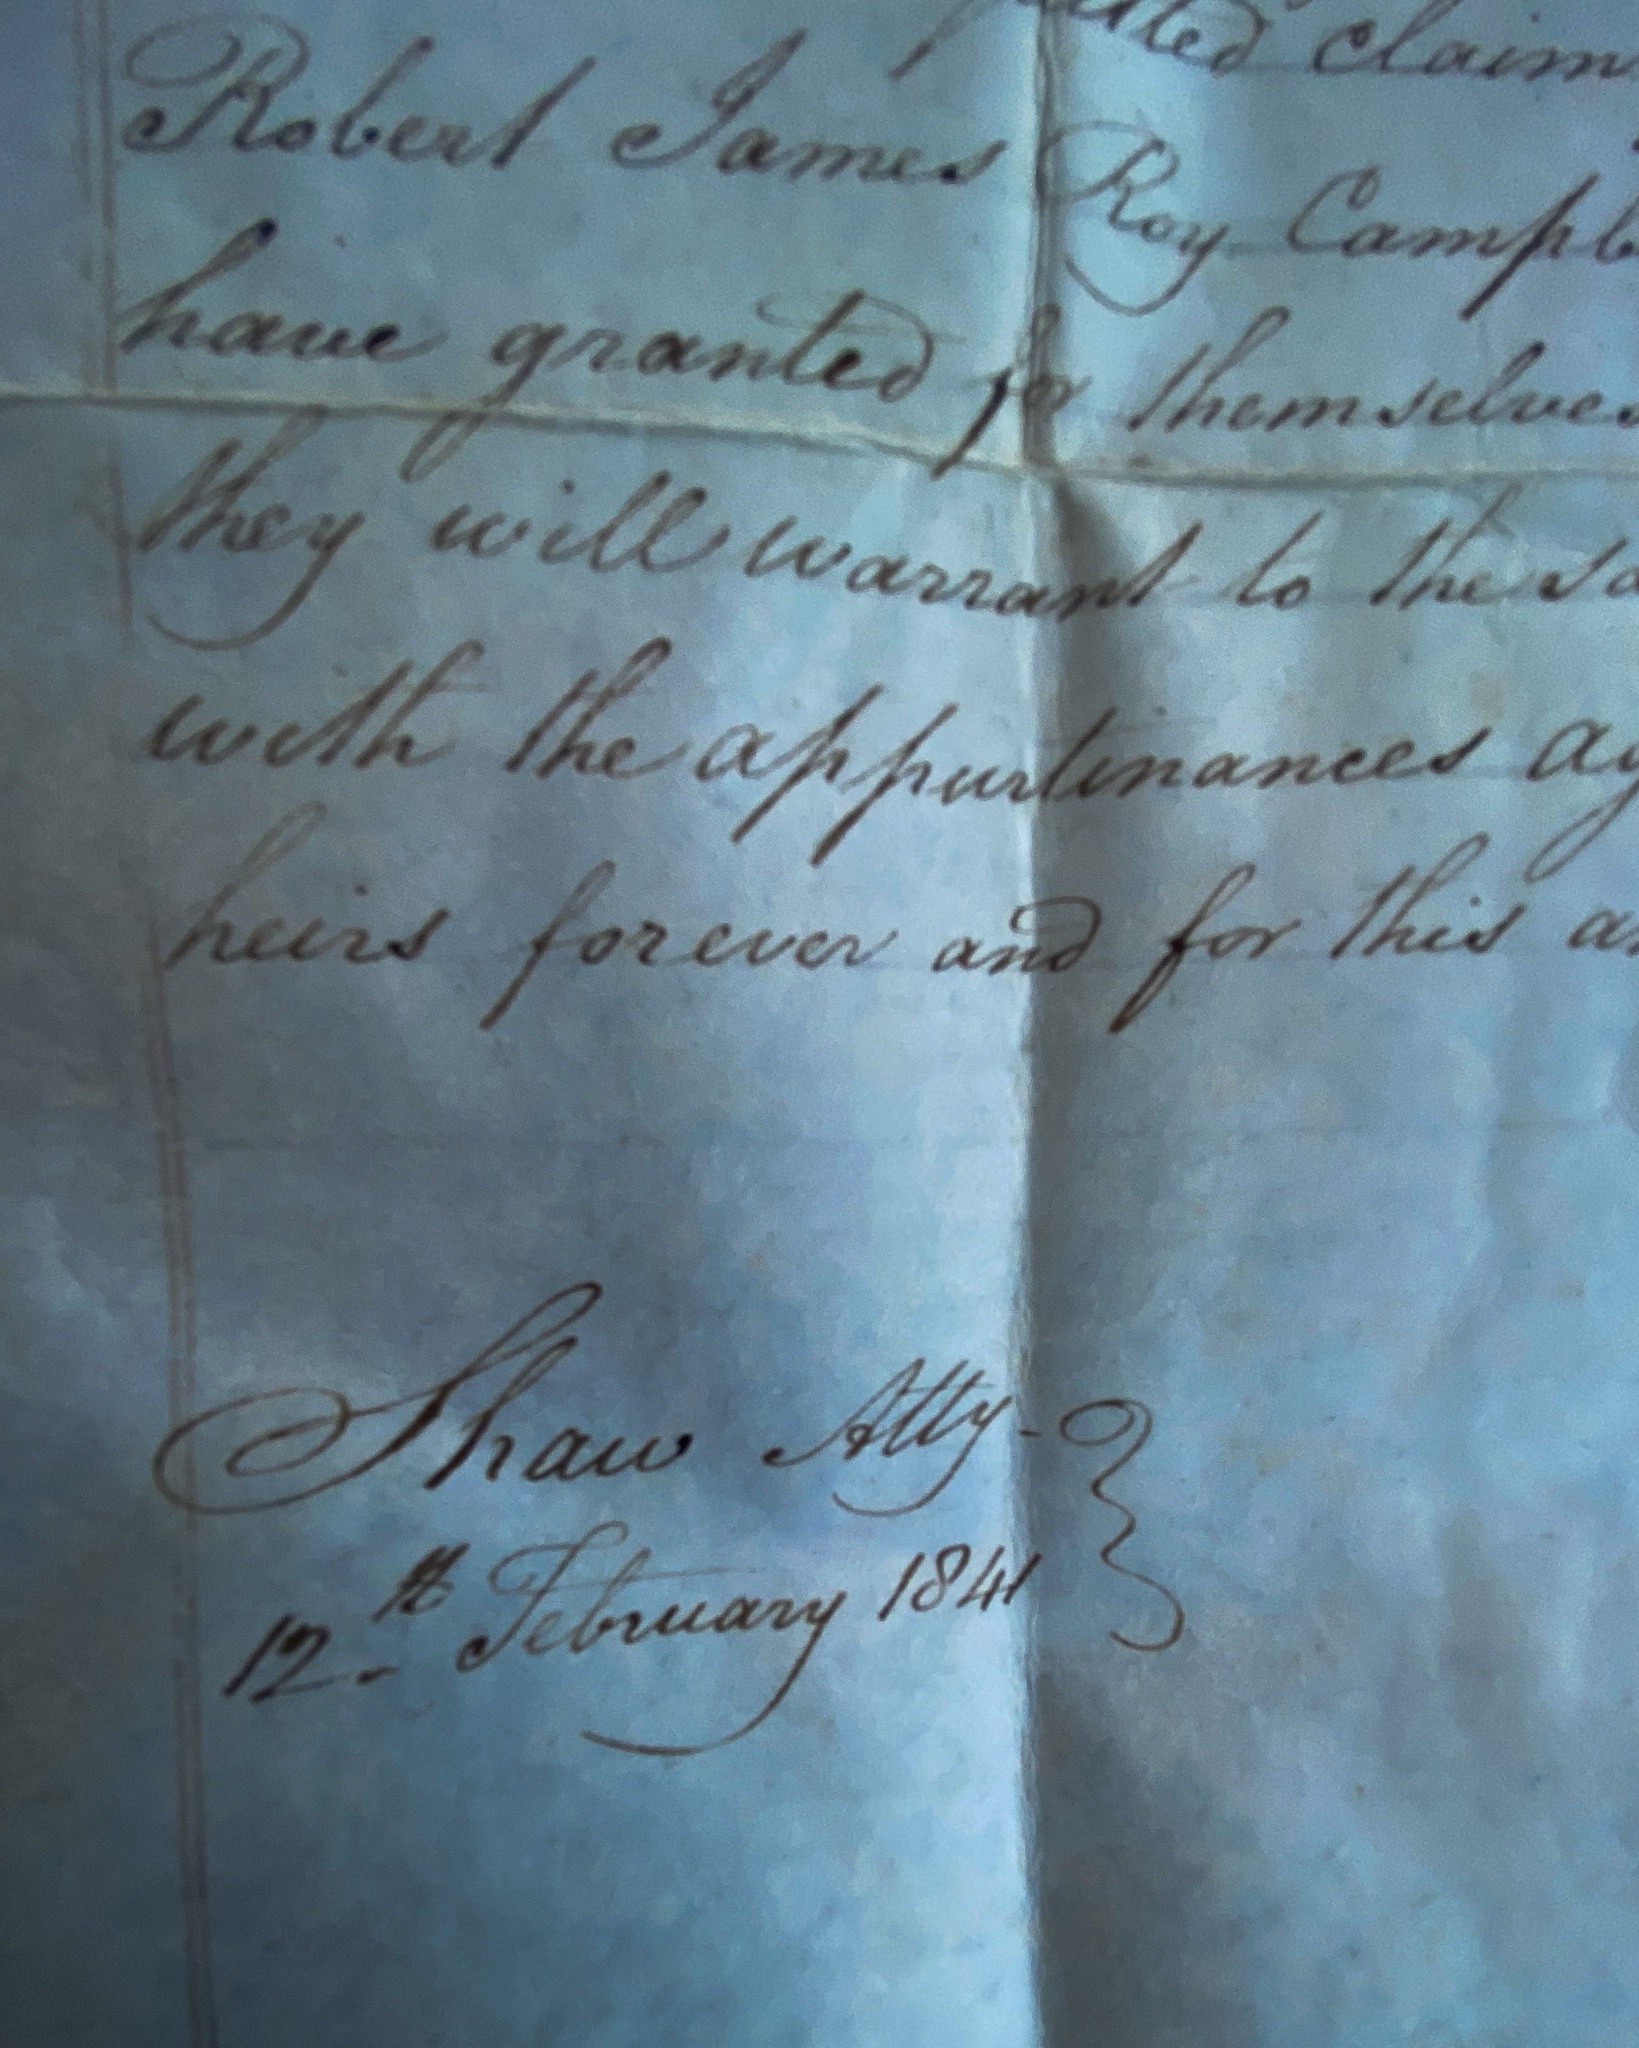 claim
Robert James Roy Campb
have granted for themselves
they will warrant to the sa
with the appurtinances ag
heirs forever and for this an
Shaw Atty-
12th February 1841